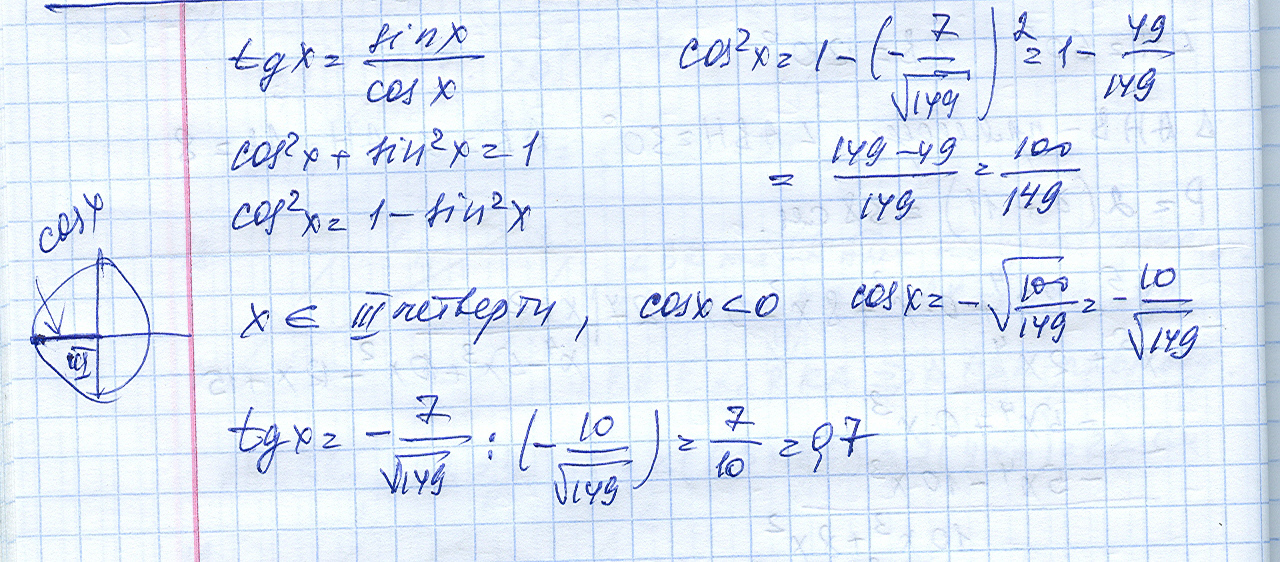 tg x = sin x / cos x
cos²x + sin²x = 1
cos²x = 1 - sin²x
cos²x = 1 - (-7/√149)² = 1 - 49/149
= (149-49)/149 = 100/149
cos x
III
x ∈ III четверти, cos x < 0 cos x = -√(100/149) = -10/√149
tg x = -7/√149 : (-10/√149) = 7/10 = 0,7